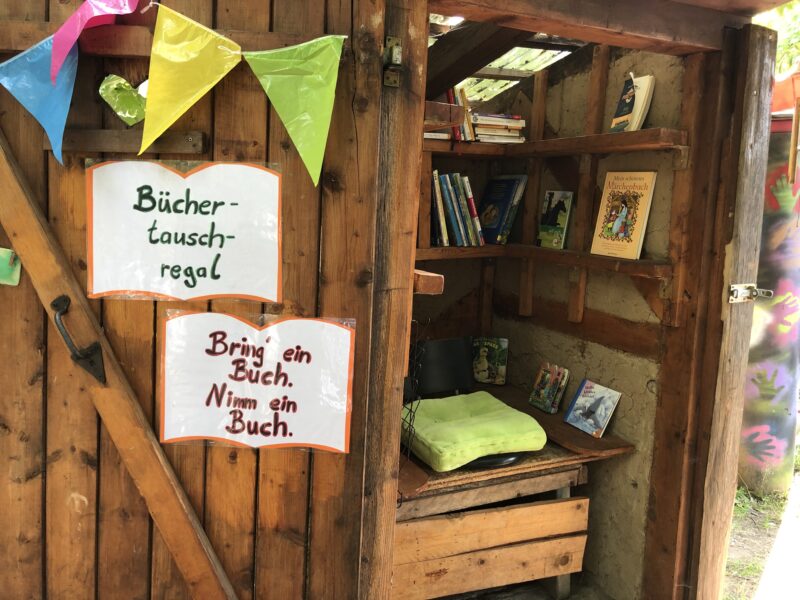 Bücher-
tausch-
regal
Bring' ein
Buch.
Nimm ein
Buch.
Märchenbuch